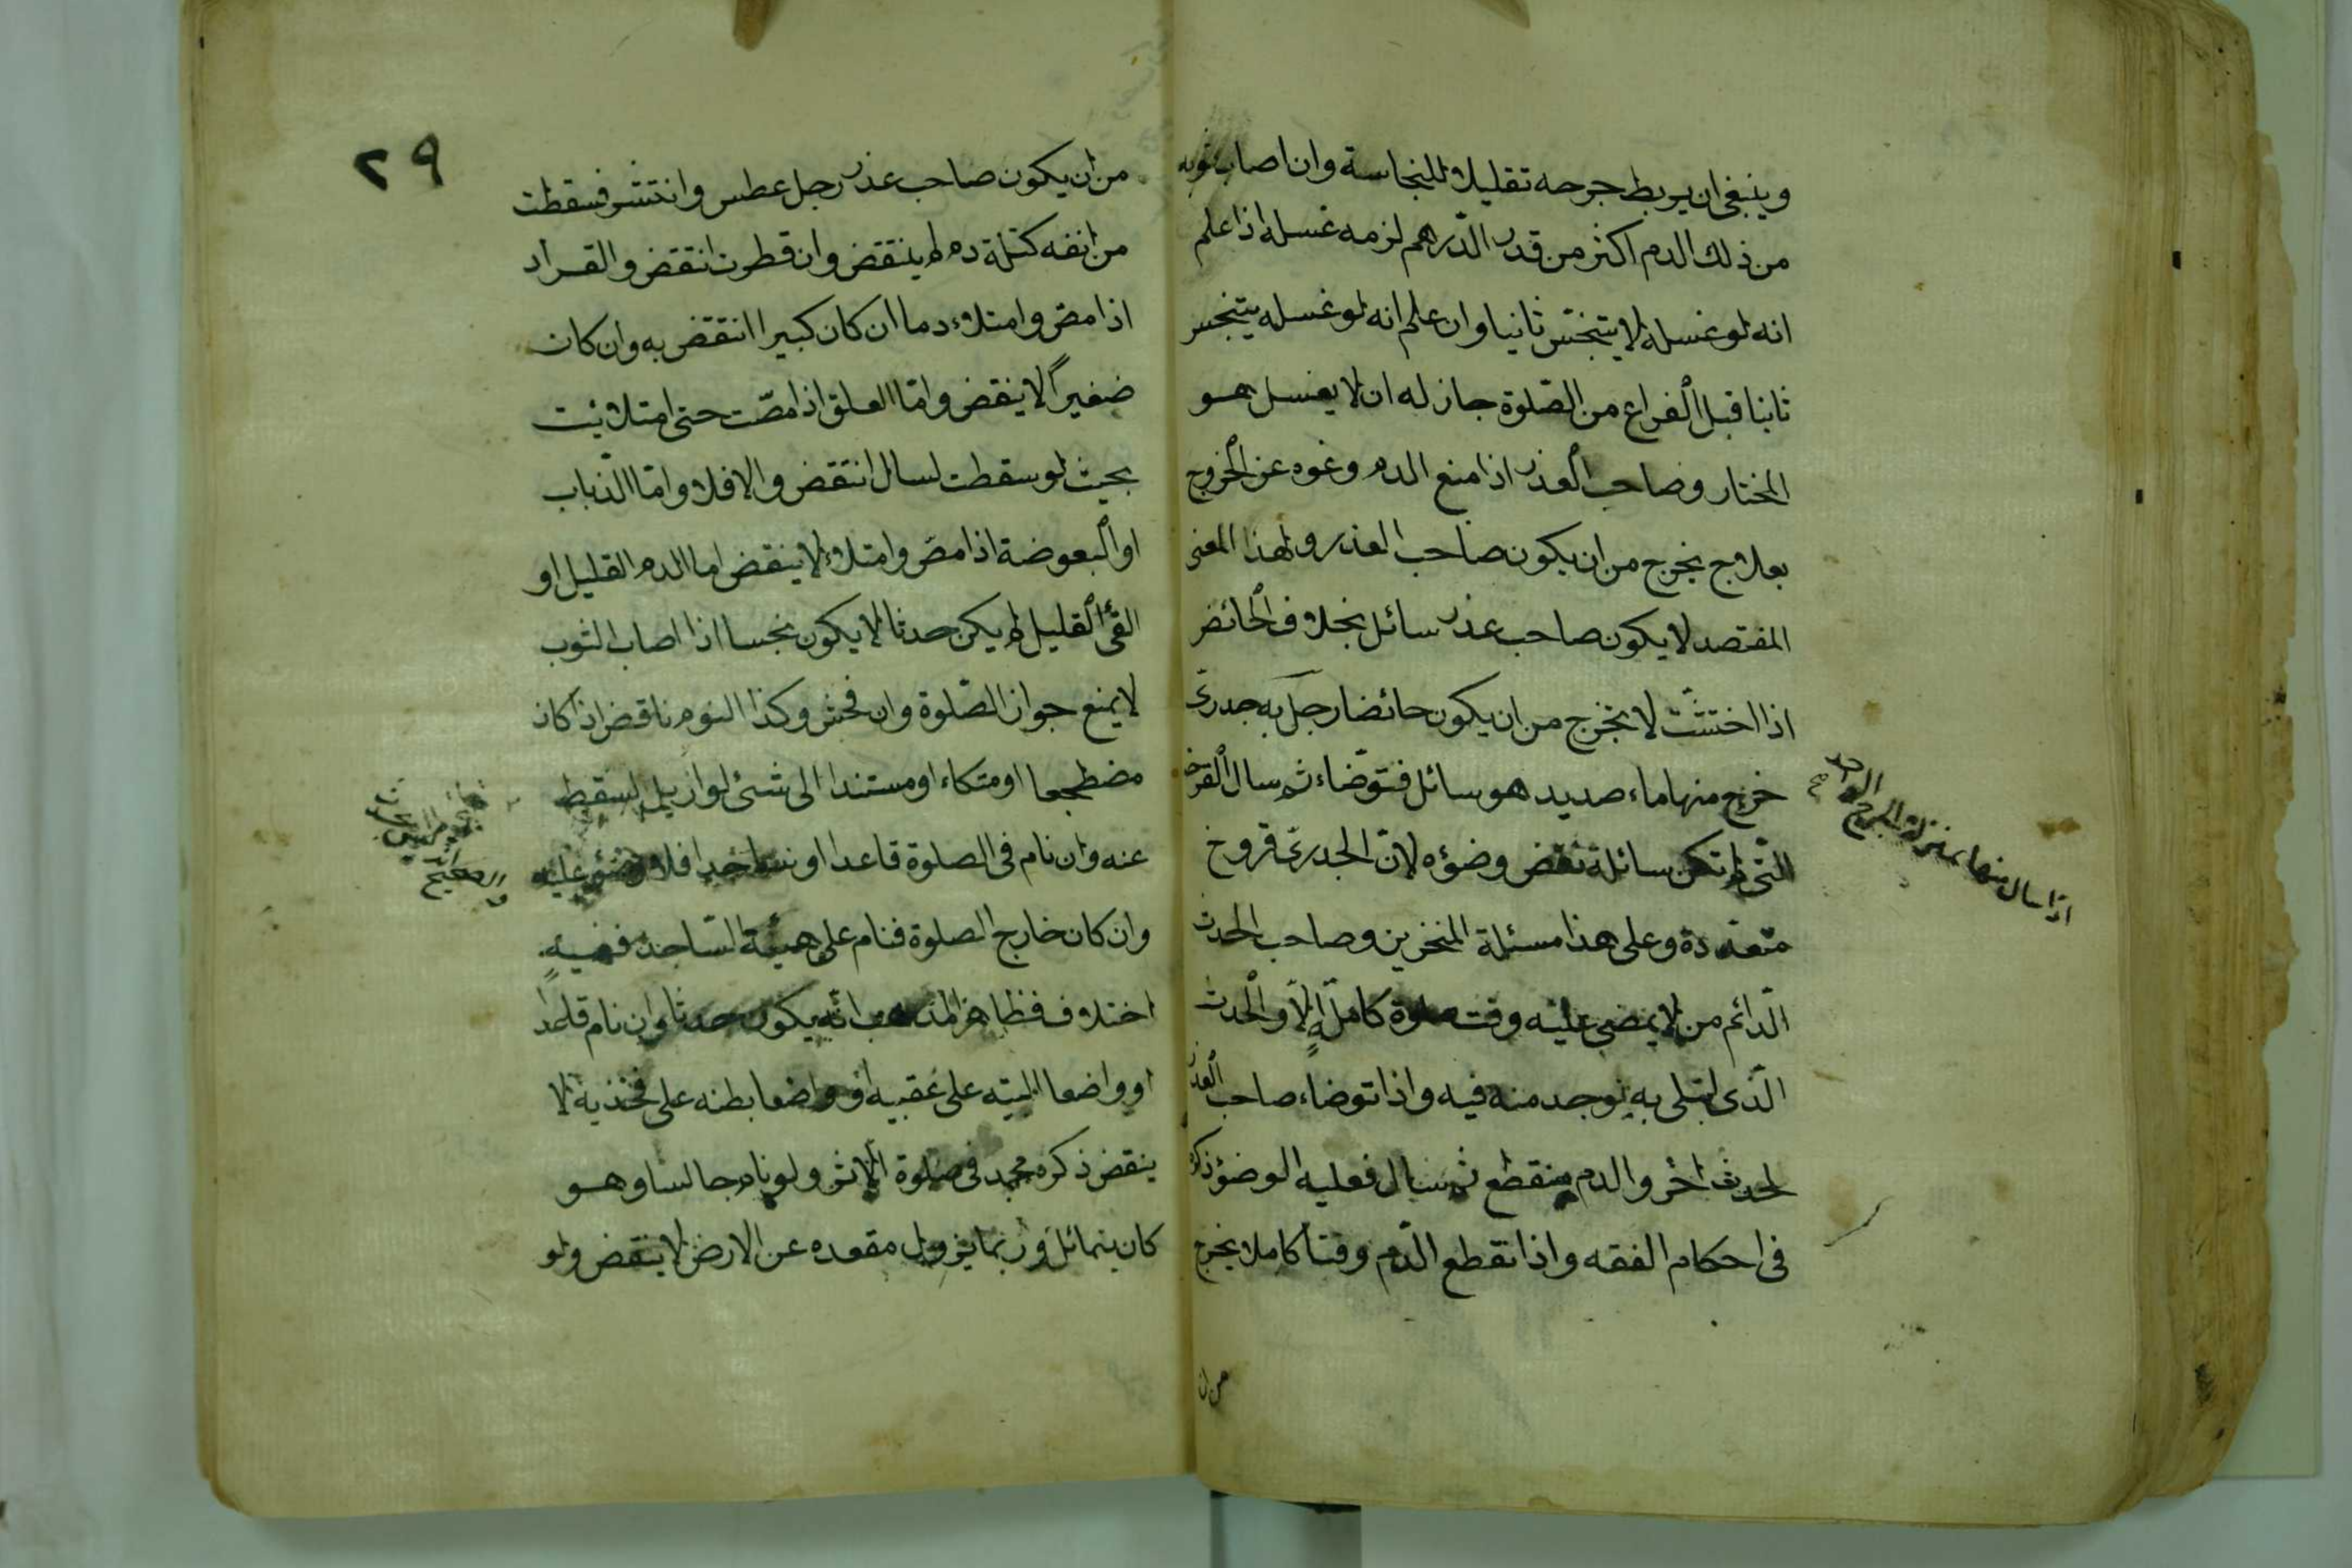 وينبغى ان يربط جرحه تقليلا للنجاسة وان اصاب ثوبه
من ذلك الدم اكثر من قدر الدّرهم لزمه غسله اذا علم
انه لو غسله لا يتنجّس ثانيا وان علم انه لو غسله يتنجس
ثانيا قبل الفراغ من الصّلوة جاز له ان لا يغسل هو
المختار وصاحب العذر اذا منع الدم ونحوه عن الخروج
بعلاج يخرج من ان يكون صاحب العذر ولهذا المعنى
المفتصد لا يكون صاحب عذر سائل بخلاف الحائض
اذا احتشّت لا تخرج من ان يكون حائضا رجل به جدرىّ
خرج منها ماء صديد هو سائل فتوضّاء ثم سال القرحة
الّتى لم تكن سائلة نقض وضوءه لانّ الجدرىّ قروح
متعددة وعلى هذا مسئلة المنخرين وصاحب الحدث
الدّائم من لا يمضى عليه وقت صلوة كاملةٍ الّا والحدث
الّذى ابتلى به يوجد منه فيه واذا توضاء صاحب العذر
لحدث اخر والدم منقطع ثم سال فعليه الوضوء ذكره
فى احكام الفقه واذا نقطع الدّم وقتا كاملا يخرج
من ان
اذا سال منها بمنزلة الجرح الواحد
صح
٢٩
من ان يكون صاحب عذر رجل عطس وانتثر فسقطت
من انفه كتلة دم لم ينتقض وان قطرت انتقض والقراد
اذا مصّ وامتلاء دما ان كان كبيرا انتقض به وان كان
صغيراً لا ينقض وامّا العلق اذا مصّت حتى امتلائت
بحيث لو سقطت لسال انتقض والا فلا وامّا الذّباب
او البعوضة اذا مصّ وامتلاء لا ينقض اما الدم القليل او
القئ القليل لم يكن حدثا لا يكون نجسا اذا اصاب الثوب
لا يمنع جواز الصّلوة وان فحش وكذا النوم ناقض اذا كان
مضطجعا او متكاء او مستندا الى شئ لو ازيل لسقط
عنه وان نام فى الصلوة قاعدا او ساجدا فلا وضوء عليه
وان كان خارج الصلوة فنام على هيئة السّاجد ففيه
اختلاف فظاهر المذهب انّه يكون حدثا وان نام قاعدا
او واضعا اليتيه على عقبيه او واضعا بطنه على فخذيه لا
ينقض ذكره محمد فى صلوة الاثر ولو نام جالسا وهو
كان يتمائل وربّما يزول مقعده عن الارض لا ينقض ولو
والصحيح